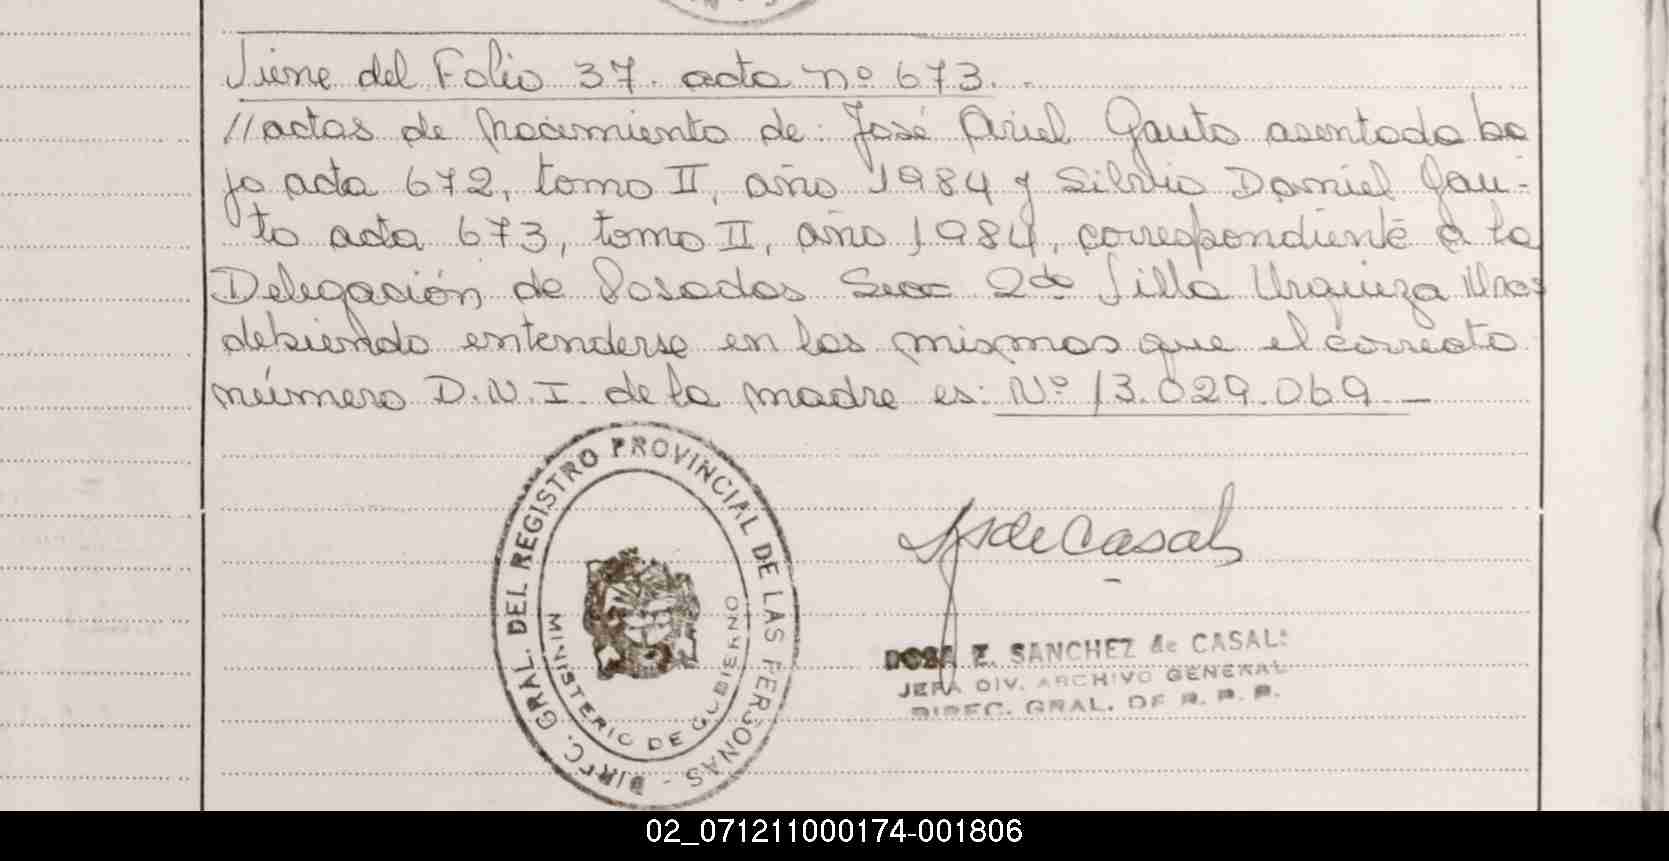 Viene del Folio 37. acta nº 673.-
//actas de Nacimiento de: José Ariel Gauto asentado ba
jo acta 672, tomo II, año 1984 y Silvio Daniel Gau-
to acta 673, tomo II, año 1984, correspondiente a la
Delegación de Posadas Secc 2da Villa Urquiza Mnes
debiendo entenderse en los mismos que el correcto
número D.N.I. de la madre es: Nº 13.029.069.-
DIREC. GRAL. DEL REGISTRO PROVINCIAL DE LAS PERSONAS -
MINISTERIO DE GOBIERNO
de Casal
E. SANCHEZ de CASAL
JEFA DIV. ARCHIVO GENERAL
DIREC. GRAL. DE R. P. P.
02_071211000174-001806